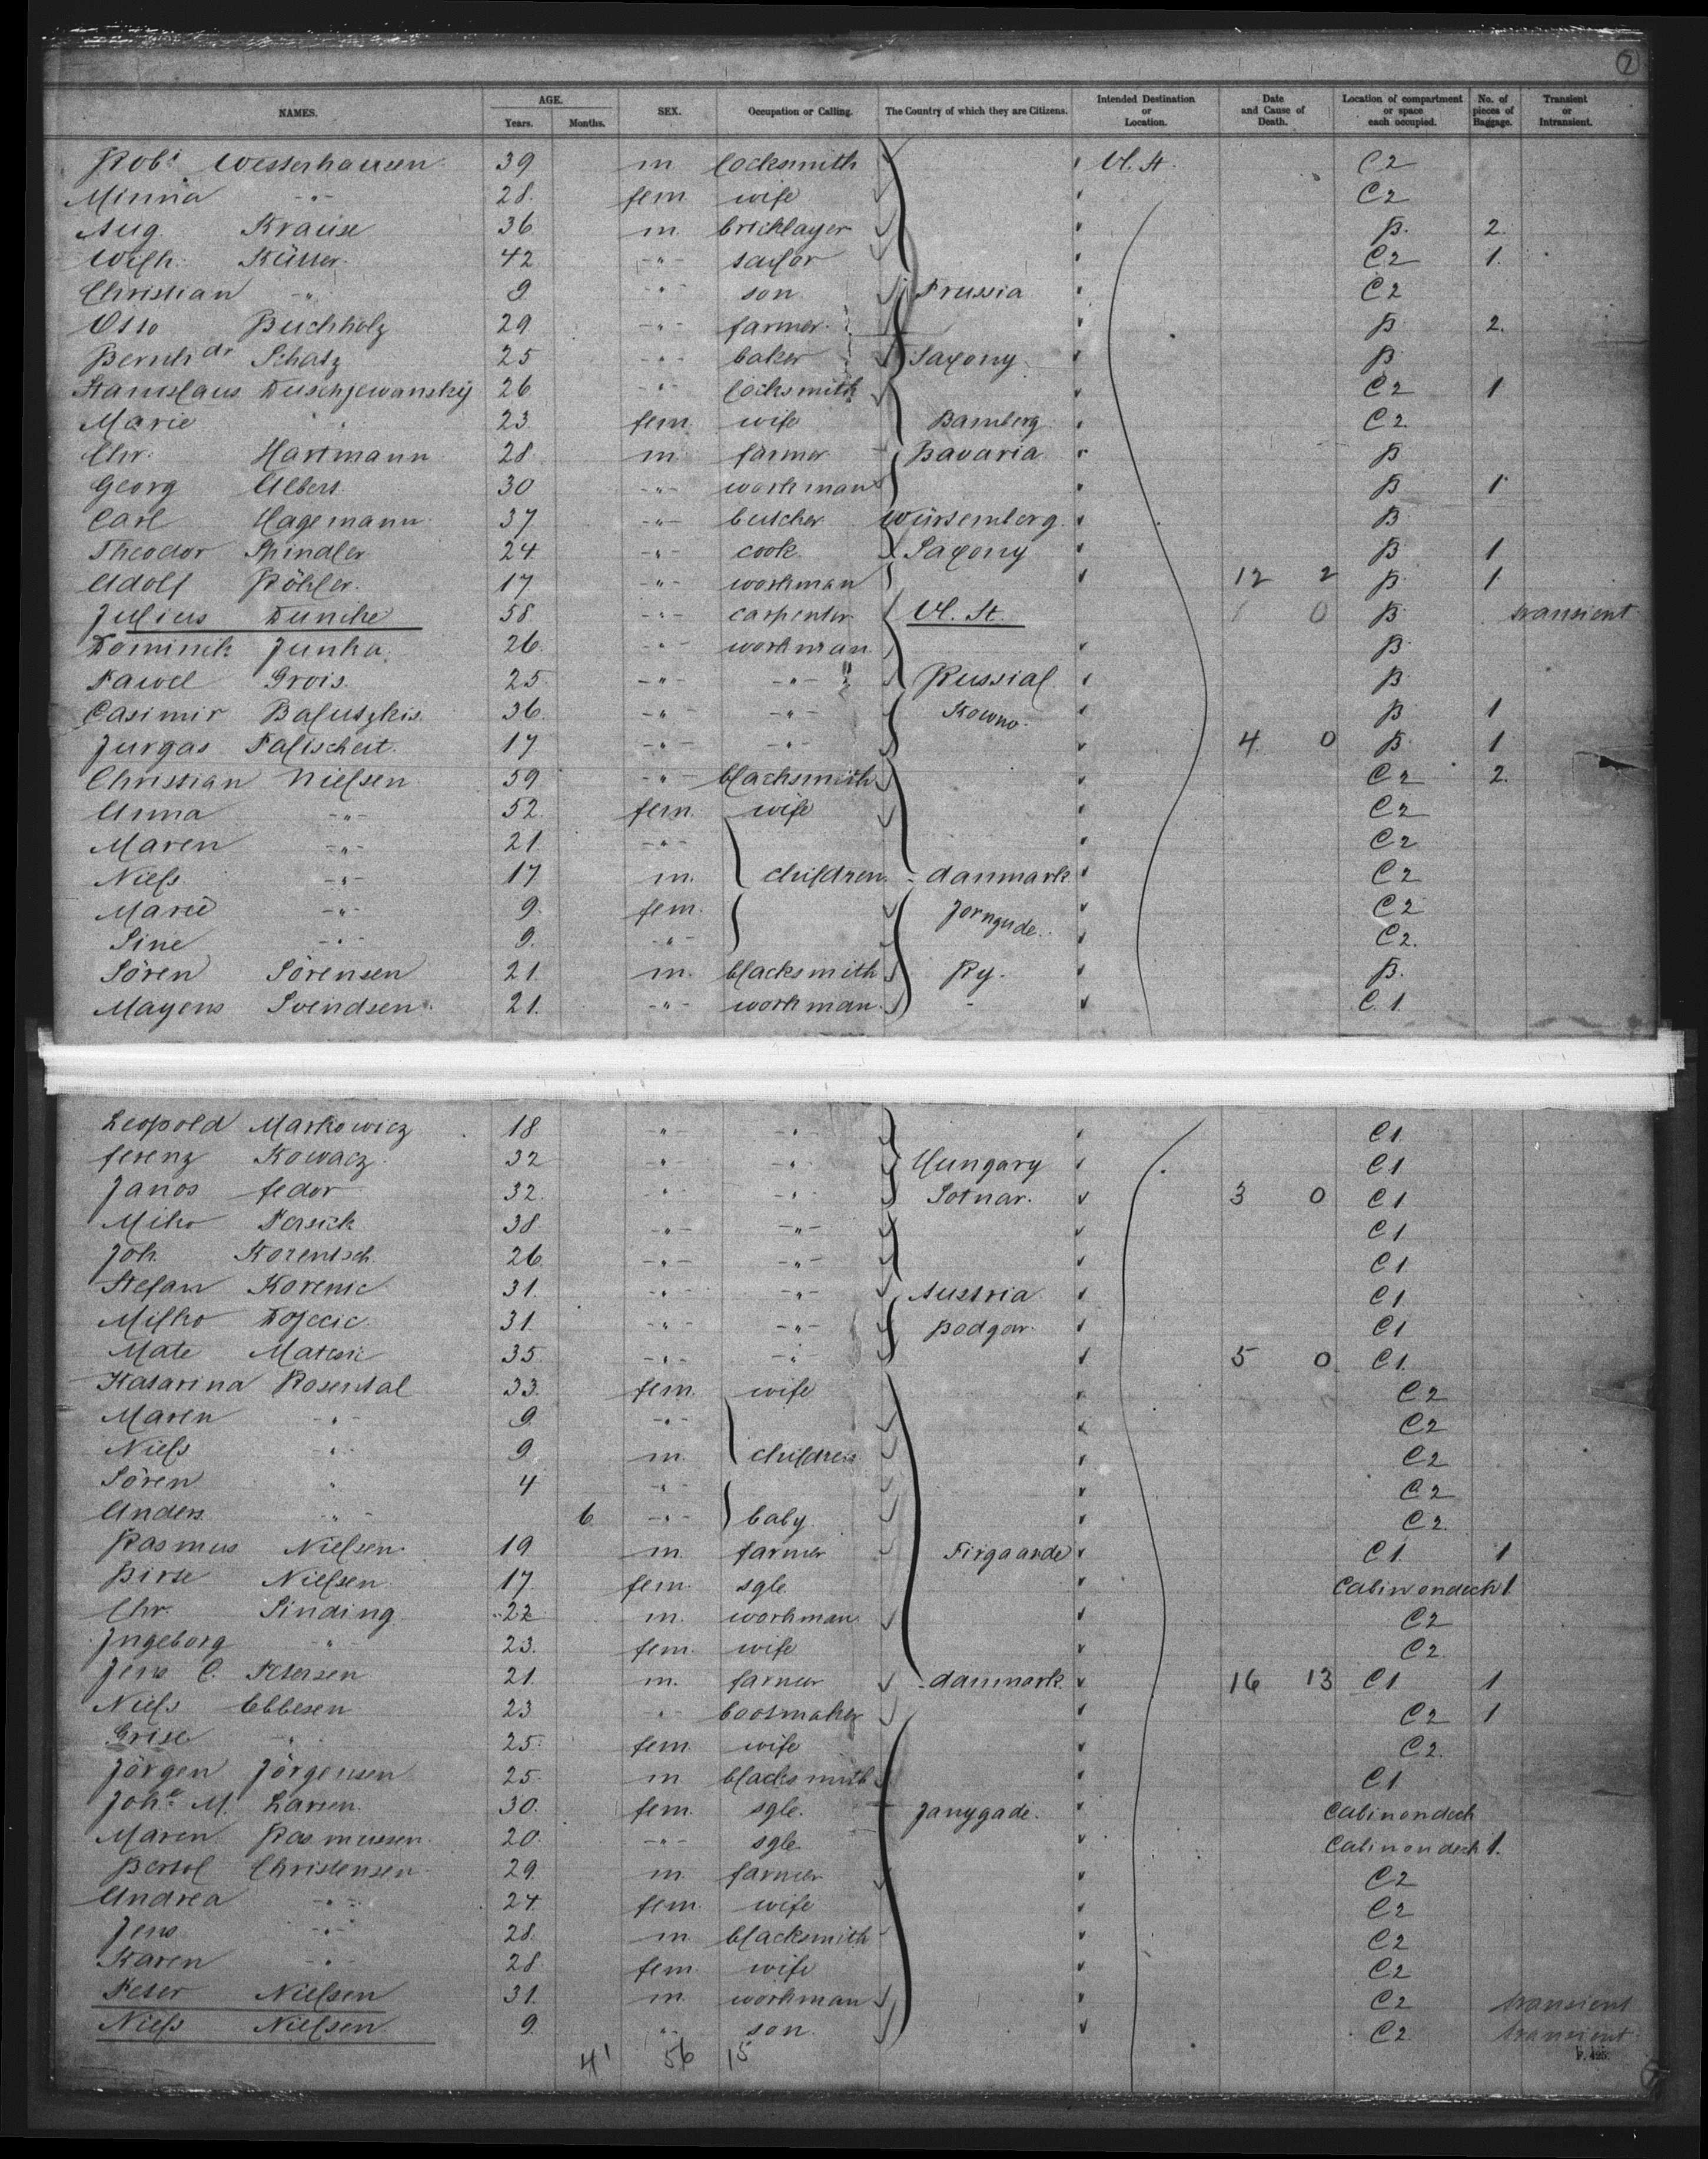 7
NAMES. AGE. Years. Months. SEX. Occupation or Calling. The Country of which they are Citizens. Intended Destination or Location. Date and Cause of Death. Location of compartment or space each occupied. No. of pieces of Baggage. Transient or Intransient.
Robt Westerhausen 39 m locksmith U. St. C2
Minna -"- 28. fem. wife C2
Aug Krause 36 m. bricklayer B. 2.
Wilh. 42 -"- sailor C2 1.
Christian -"- 9 -"- son Prussia C2
Otto Buchholz 29 -"- farmer B 2.
Bernhdt Schatz 25 -"- baker Saxony B
Stanislaus 26 -"- locksmith C2 1
Marie " 23 fem. wife Bamberg C2
Chr. Hartmann 28 m. farmer Bavaria B
Georg Albers 30 -"- workman B 1
Carl Hagemann 37 -"- butcher Würtemberg B
Theodor Spindler 24 -"- cook Saxony B 1
Adolf Köhler 17 -"- workman 12 2 B 1
Julius Duncke 58. -"- carpenter U. St. 1 0 B transient
Dominik Junka 26. -"- workman B
Pawel Grois. 25 -"- -"- Russia B
Casimir Baluszkis 36. -"- -"- Kowno. B 1
Jurgas Palischeit. 17 -"- -"- 4 0 B 1
Christian Nielsen 59 -"- blacksmith C2 2.
Anna -"- 52. fem. wife C2
Maren -"- 21. -"- C2
Niels -"- 17 m. children danmark C2
Marie -"- 9. fem. C2
Sine -"- 9. -"- C2.
Sören Sörensen 21. m. blacksmith Ry. B.
Magens Svendsen. 21. -"- workman - C.1.
Leopold Markowicz 18 -"- -"- C1
ferenz Kowacz 32 -"- -"- Hungary C1
Janos fedor 32. -"- -"- Sotnar. 3 0 C1
Miko Persich 38 -"- -"- C1
Joh. Korentsch 26 -"- -"- C1
Stefan Korenic 31. -"- -"- Austria C1
Milko 31. -"- -"- Podgor. C1
Mate Matesic 35 -"- -"- 5 0 C1.
Katarina Rosental 33. fem. wife C2
Maren -"- 9. -"- C2
Niels " 9. m. children C2
Sören " 4 -"- C2
Anders -"- 6 -"- baby. C2
Rasmus Nielsen 19 m. farmer C1. 1
Birte Nielsen 17. fem. sgle Cabin ondeck 1
Chr. Sinding 22 m. workman C2
Ingeborg -"- 23. fem. wife C2
Jens C. Petersen 21. m. farmer danmark. 16 13 C1 1
Niels Ebbesen 23 -"- bootmaker C2 1
Grise -"- 25. fem. wife C2.
Jörgen Jörgensen 25. m blacksmith C1
Johe M. Larsen. 30. fem. sgle. Cabin ondeck
Maren Rasmussen. 20. -"- sgle Cabin ondeck 1.
Bertol Christensen 29. m. farmer C2
Andrea -"- 24. fem. wife C2
Jens -"- 28. m blacksmith C2
Karen -"- 28 fem. wife C2
Peter Nielsen 31. m. workman C2 transient
Niels Nielsen 9. -"- son. C2 transient
41 56 15
P. 425.